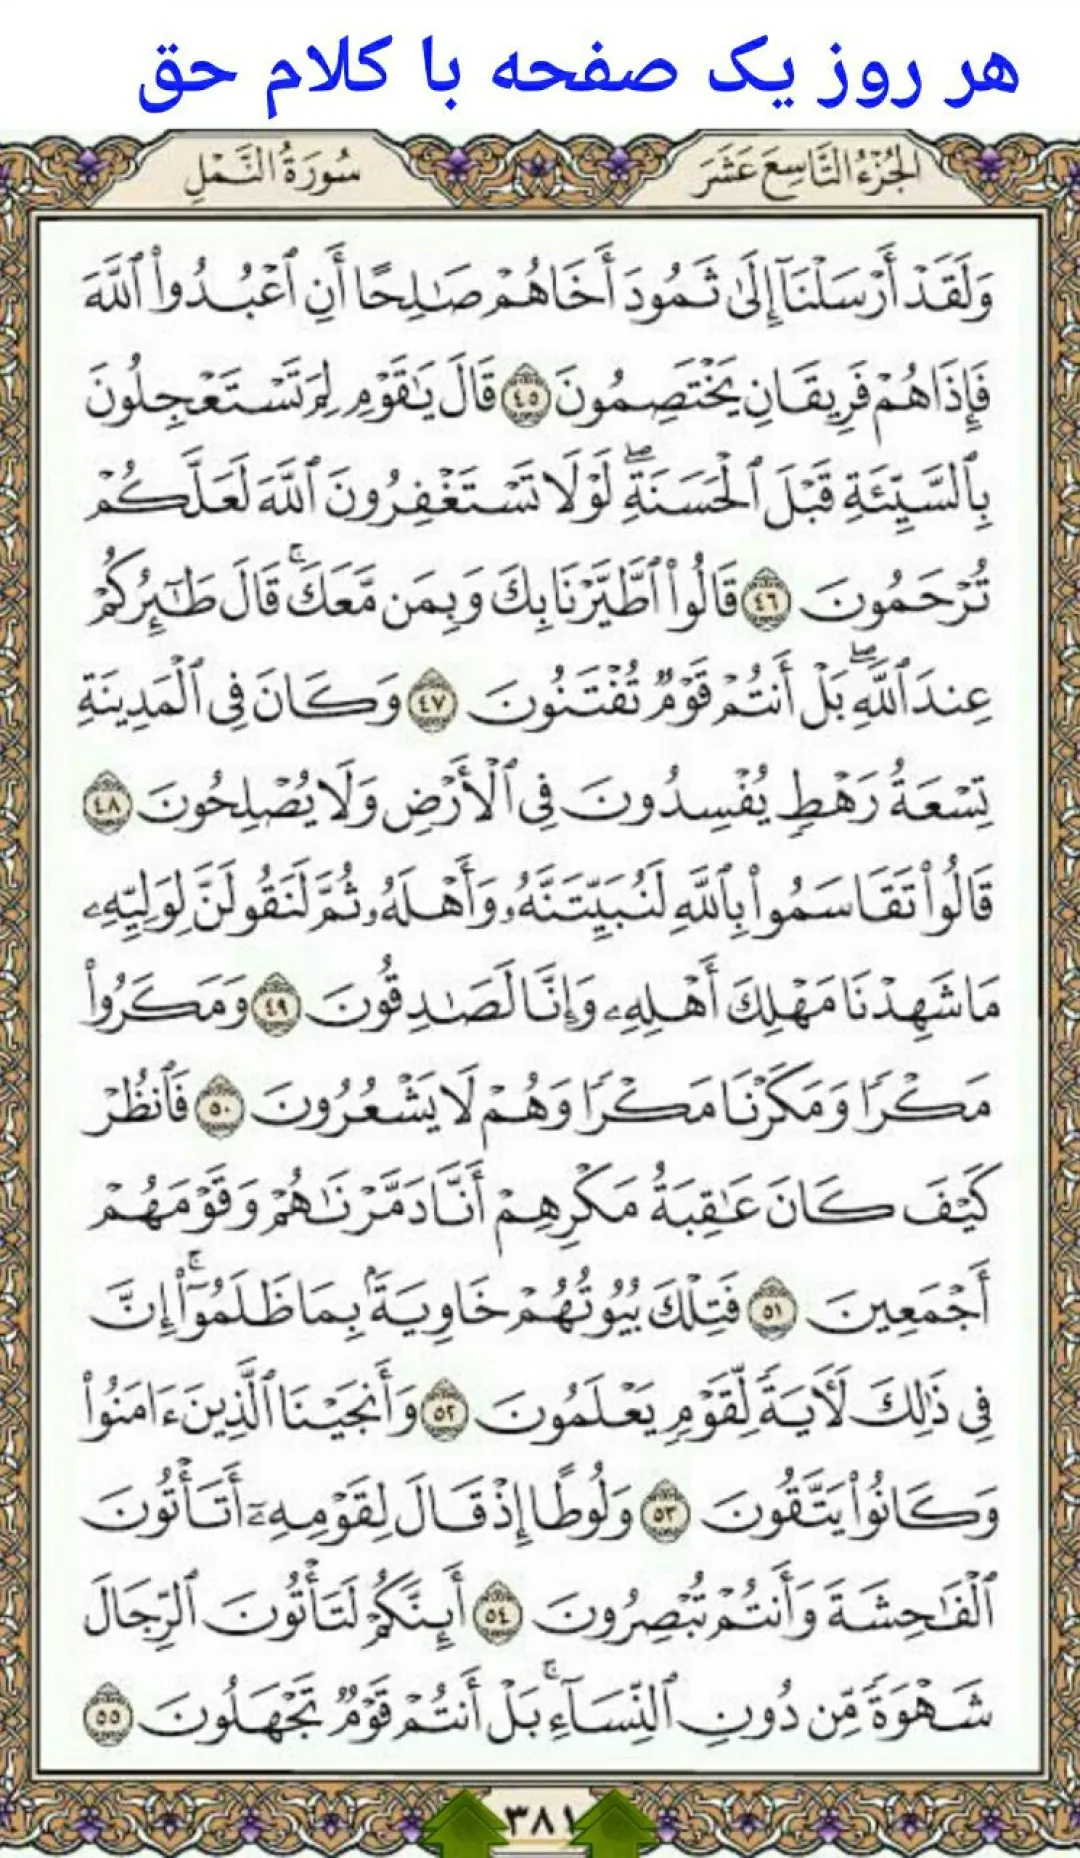 هر روز یک صفحه با کلام حق
الجُزْءُ التَّاسِعَ عَشَرَ
سُورَةُ النَّمْلِ
وَلَقَدْ أَرْسَلْنَآ إِلَىٰ ثَمُودَ أَخَاهُمْ صَٰلِحًا أَنِ ٱعْبُدُوا۟ ٱللَّهَ
فَإِذَا هُمْ فَرِيقَانِ يَخْتَصِمُونَ ٤٥ قَالَ يَٰقَوْمِ لِمَ تَسْتَعْجِلُونَ
بِٱلسَّيِّئَةِ قَبْلَ ٱلْحَسَنَةِ ۖ لَوْلَا تَسْتَغْفِرُونَ ٱللَّهَ لَعَلَّكُمْ
تُرْحَمُونَ ٤٦ قَالُوا۟ ٱطَّيَّرْنَا بِكَ وَبِمَن مَّعَكَ ۚ قَالَ طَٰٓئِرُكُمْ
عِندَ ٱللَّهِ ۖ بَلْ أَنتُمْ قَوْمٌ تُفْتَنُونَ ٤٧ وَكَانَ فِى ٱلْمَدِينَةِ
تِسْعَةُ رَهْطٍ يُفْسِدُونَ فِى ٱلْأَرْضِ وَلَا يُصْلِحُونَ ٤٨
قَالُوا۟ تَقَاسَمُوا۟ بِٱللَّهِ لَنُبَيِّتَنَّهُۥ وَأَهْلَهُۥ ثُمَّ لَنَقُولَنَّ لِوَلِيِّهِۦ
مَا شَهِدْنَا مَهْلِكَ أَهْلِهِۦ وَإِنَّا لَصَٰدِقُونَ ٤٩ وَمَكَرُوا۟
مَكْرًا وَمَكَرْنَا مَكْرًا وَهُمْ لَا يَشْعُرُونَ ٥٠ فَٱنظُرْ
كَيْفَ كَانَ عَٰقِبَةُ مَكْرِهِمْ أَنَّا دَمَّرْنَٰهُمْ وَقَوْمَهُمْ
أَجْمَعِينَ ٥١ فَتِلْكَ بُيُوتُهُمْ خَاوِيَةًۢ بِمَا ظَلَمُوٓا۟ ۗ إِنَّ
فِى ذَٰلِكَ لَءَايَةً لِّقَوْمٍ يَعْلَمُونَ ٥٢ وَأَنجَيْنَا ٱلَّذِينَ ءَامَنُوا۟
وَكَانُوا۟ يَتَّقُونَ ٥٣ وَلُوطًا إِذْ قَالَ لِقَوْمِهِۦٓ أَتَأْتُونَ
ٱلْفَٰحِشَةَ وَأَنتُمْ تُبْصِرُونَ ٥٤ أَئِنَّكُمْ لَتَأْتُونَ ٱلرِّجَالَ
شَهْوَةً مِّن دُونِ ٱلنِّسَآءِ ۚ بَلْ أَنتُمْ قَوْمٌ تَجْهَلُونَ ٥٥
٣٨١